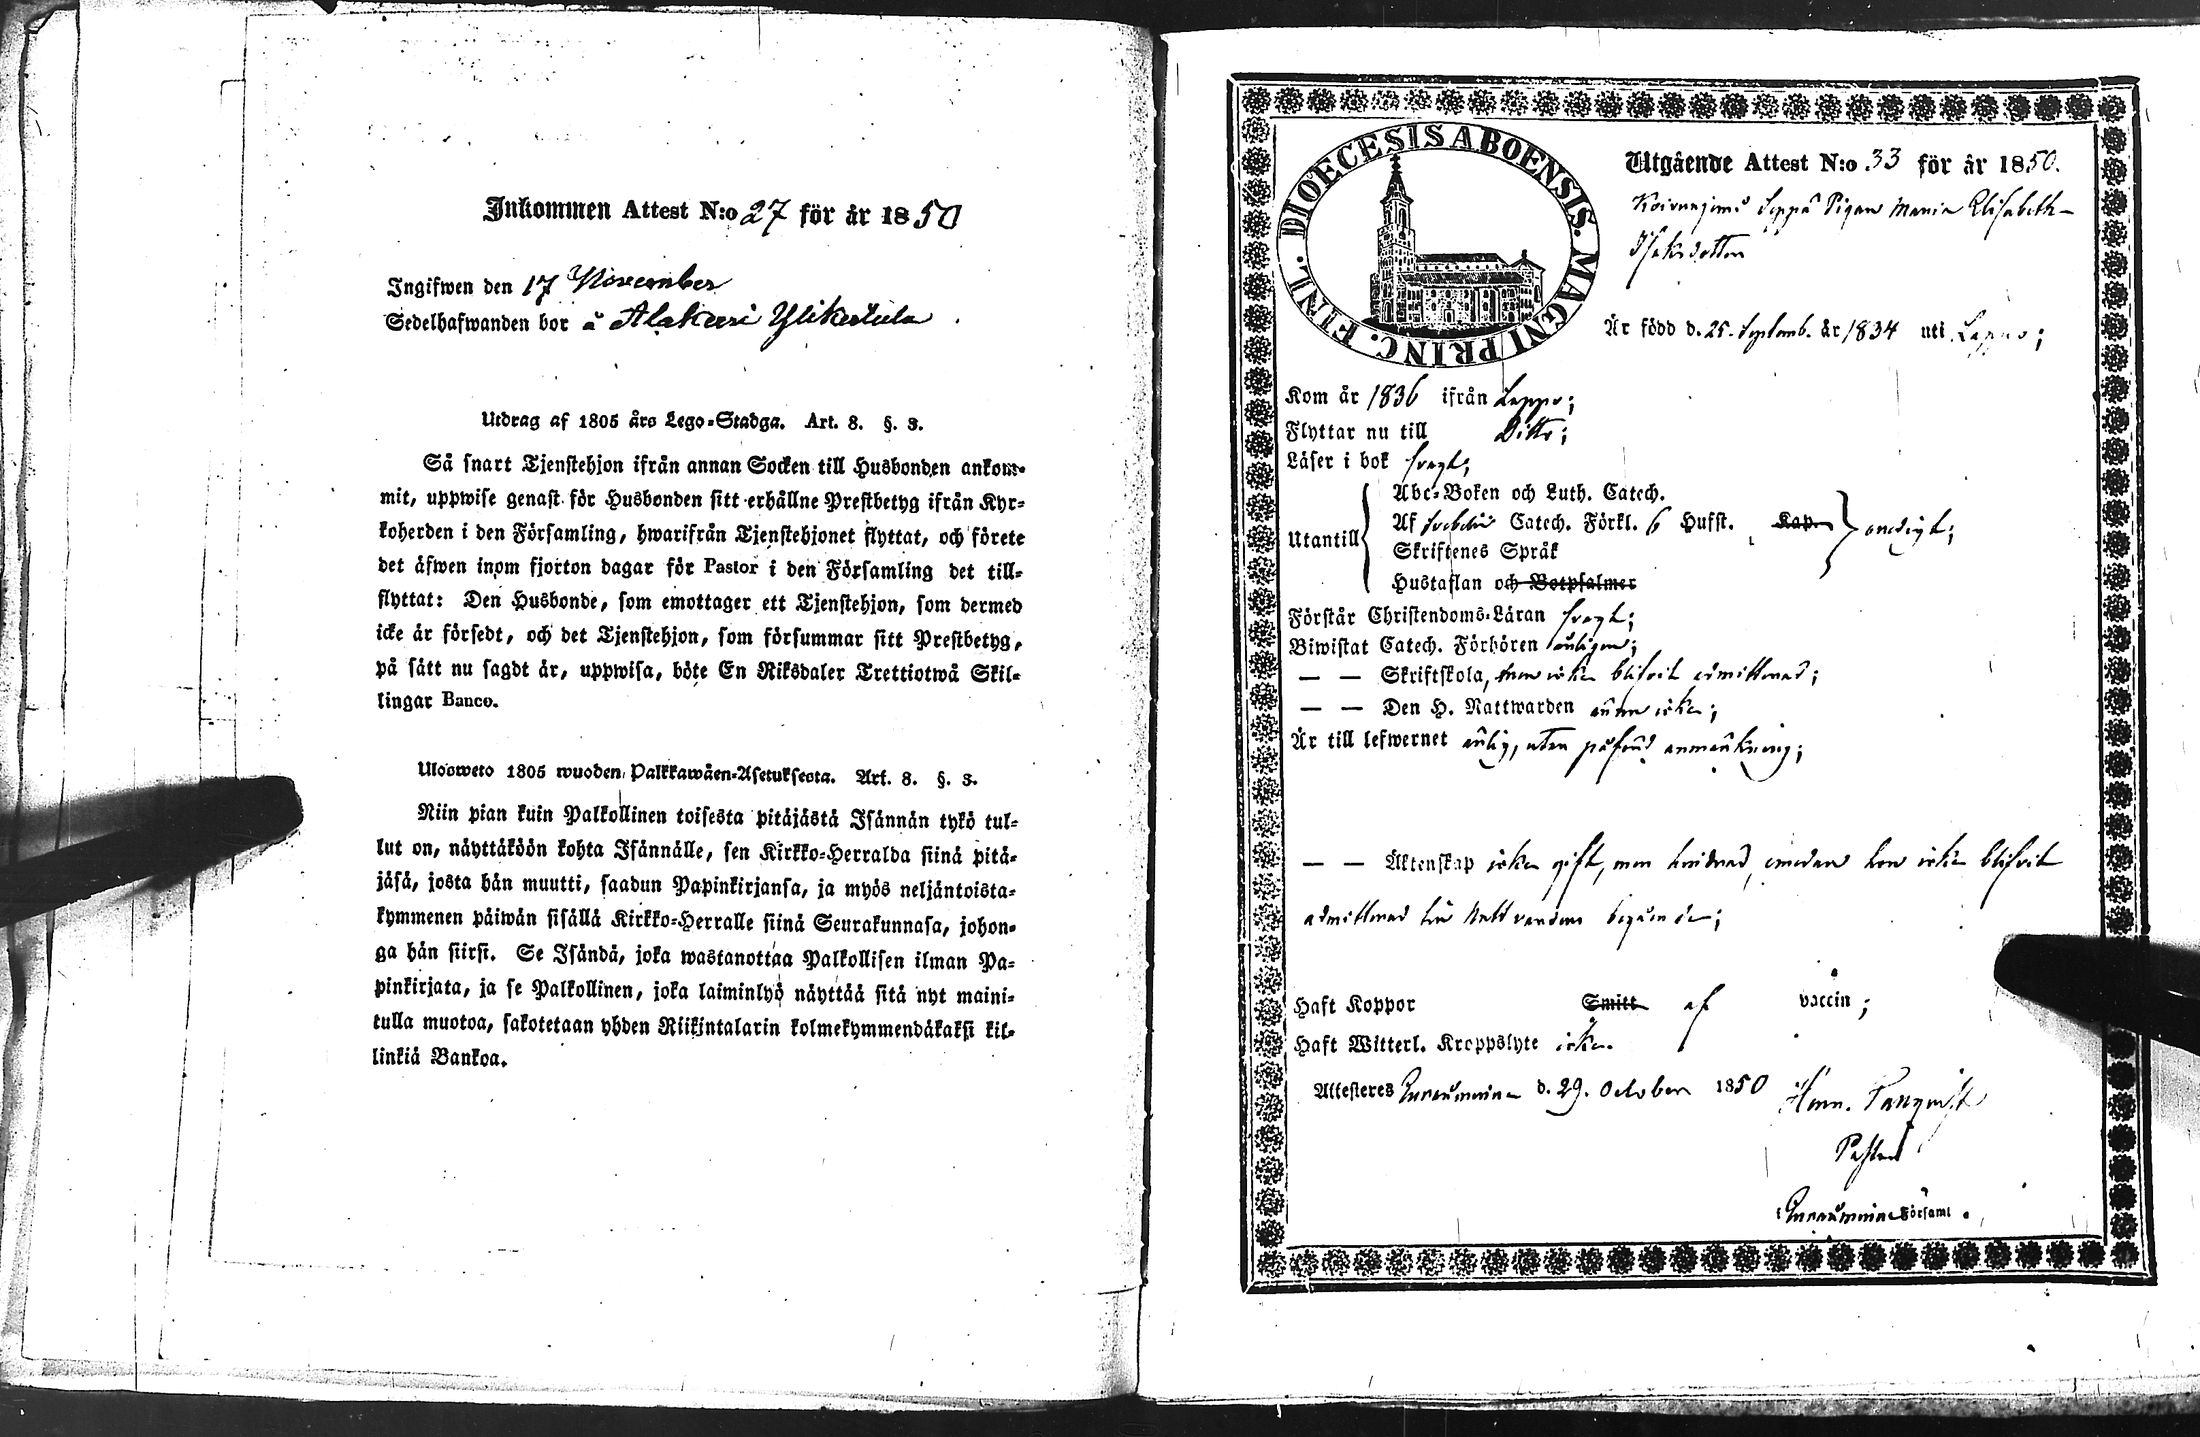 Inkommen Attest N:o 27 för år 1850
Ingifwen den 17 November
Sedelhafwanden bor å Alakeri Ylikertula
Utdrag af 1805 års Lego-Stadga. Art. 8. §. 3.
Så snart Tjenstehjon ifrån annan Socken till Husbonden ankom-
mit, uppwise genast för Husbonden sitt erhållne Prestbetyg ifrån Kyr-
koherden i den Församling, hwarifrån Tjenstehjonet flyttat, och förete
det äfwen inom fjorton dagar för Pastor i den Församling det till-
flyttat: Den Husbonde, som emottager ett Tjenstehjon, som dermed
icke är försedt, och det Tjenstehjon, som försummar sitt Prestbetyg,
på sätt nu sagdt är, uppwisa, böte En Riksdaler Trettiotwå Skil-
lingar Banco.
Ulosweto 1805 wuoden Palkkawäen-Asetuksesta. Art. 8. §. 3.
Niin pian kuin Palkollinen toisesta pitäjästä Isännän tykö tul-
lut on, näyttäköön kohta Isännälle, sen Kirkko-Herralda siinä pitä-
jäsä, josta hän muutti, saadun Papinkirjansa, ja myös neljäntoista-
kymmenen päiwän sisällä Kirkko-Herralle siinä Seurakunnasa, johon-
ga hän siirsi. Se Isändä, joka wastanottaa Palkollisen ilman Pa-
pinkirjata, ja se Palkollinen, joka laiminlyö näyttää sitä nyt maini-
tulla muotoa, sakotetaan yhden Riikintalarin kolmekymmendäkaksi kil-
linkiä Bankoa.
DIOECESIS ABOENSIS. MAGNI PRINC. FINL.
Utgående Attest N:o 33 för år 1850.
Leppä Pigan Maria Elisabeth
Isaksdotter
Är född d. 25. Septemb. år 1834 uti Lappo;
Kom år 1836 ifrån Lappo;
Flyttar nu till Ditto;
Läser i bok svagt;
Utantill
Abc-Boken och Luth. Catech.
Af Svebelii Catech. Förkl. 6 Hufst. Kap.
Skriftenes Språk
Hustaflan och Botpsalmer
Förstår Christendoms-Läran svagt;
Biwistat Catech. Förhören årligen;
— — Skriftskola, men icke blifvit admitterad;
— — Den H. Nattwarden ännu icke;
Är till lefwernet ärlig, utan påförd anmärkning;
— — Äktenskap icke gift, men hindrad, emedan hon icke blifvit
admitterad till Nattvardens begående;
Haft Koppor Smitt af vaccin;
Haft Witterl. Kroppslyte icke.
Attesteres d. 29. October 1850
Herm.
Pastor
i Församl.